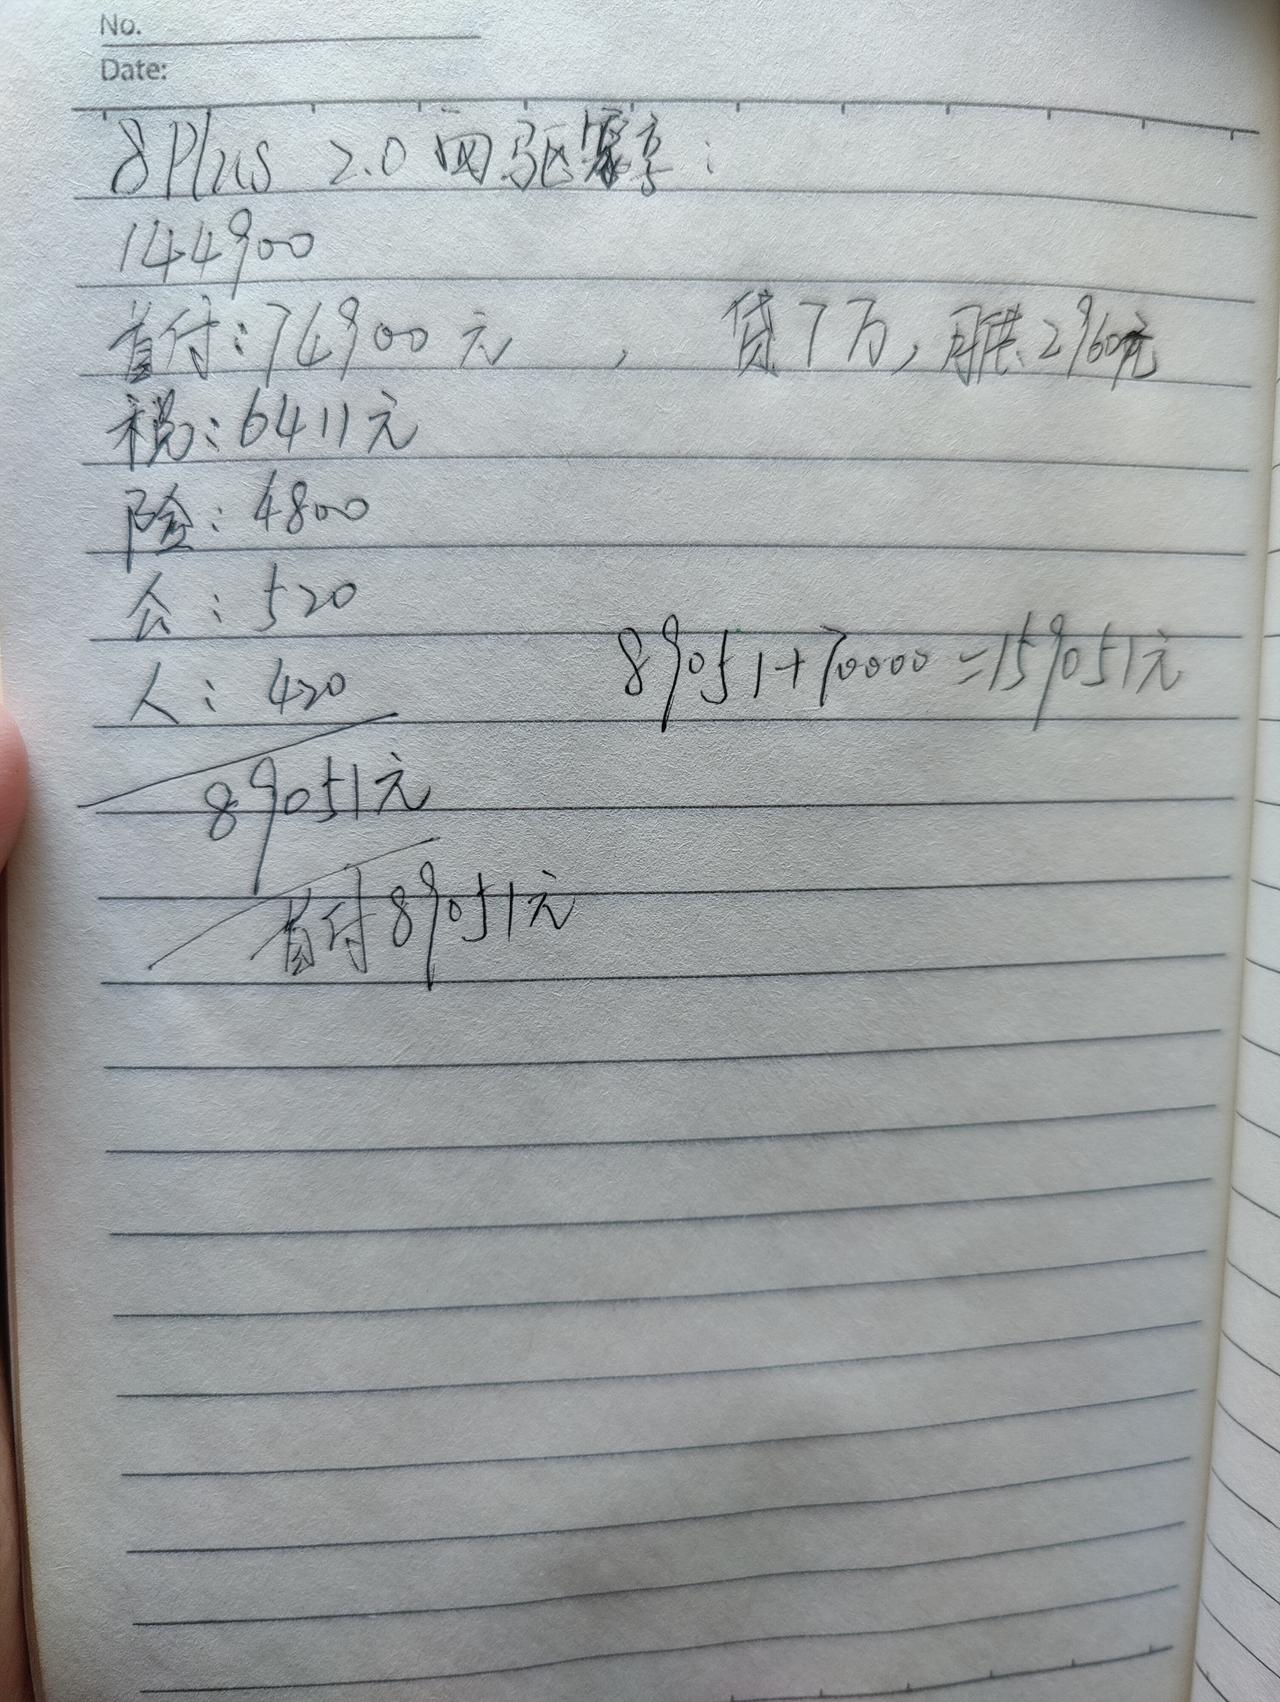 No.
Date:
8Plus 2.0四驱尊享:
144900
首付:74900元 , 贷7万,月供2960元
税:6411元
险:4800
公:520
人:420
89051+70000=159051元
89051元
首付89051元